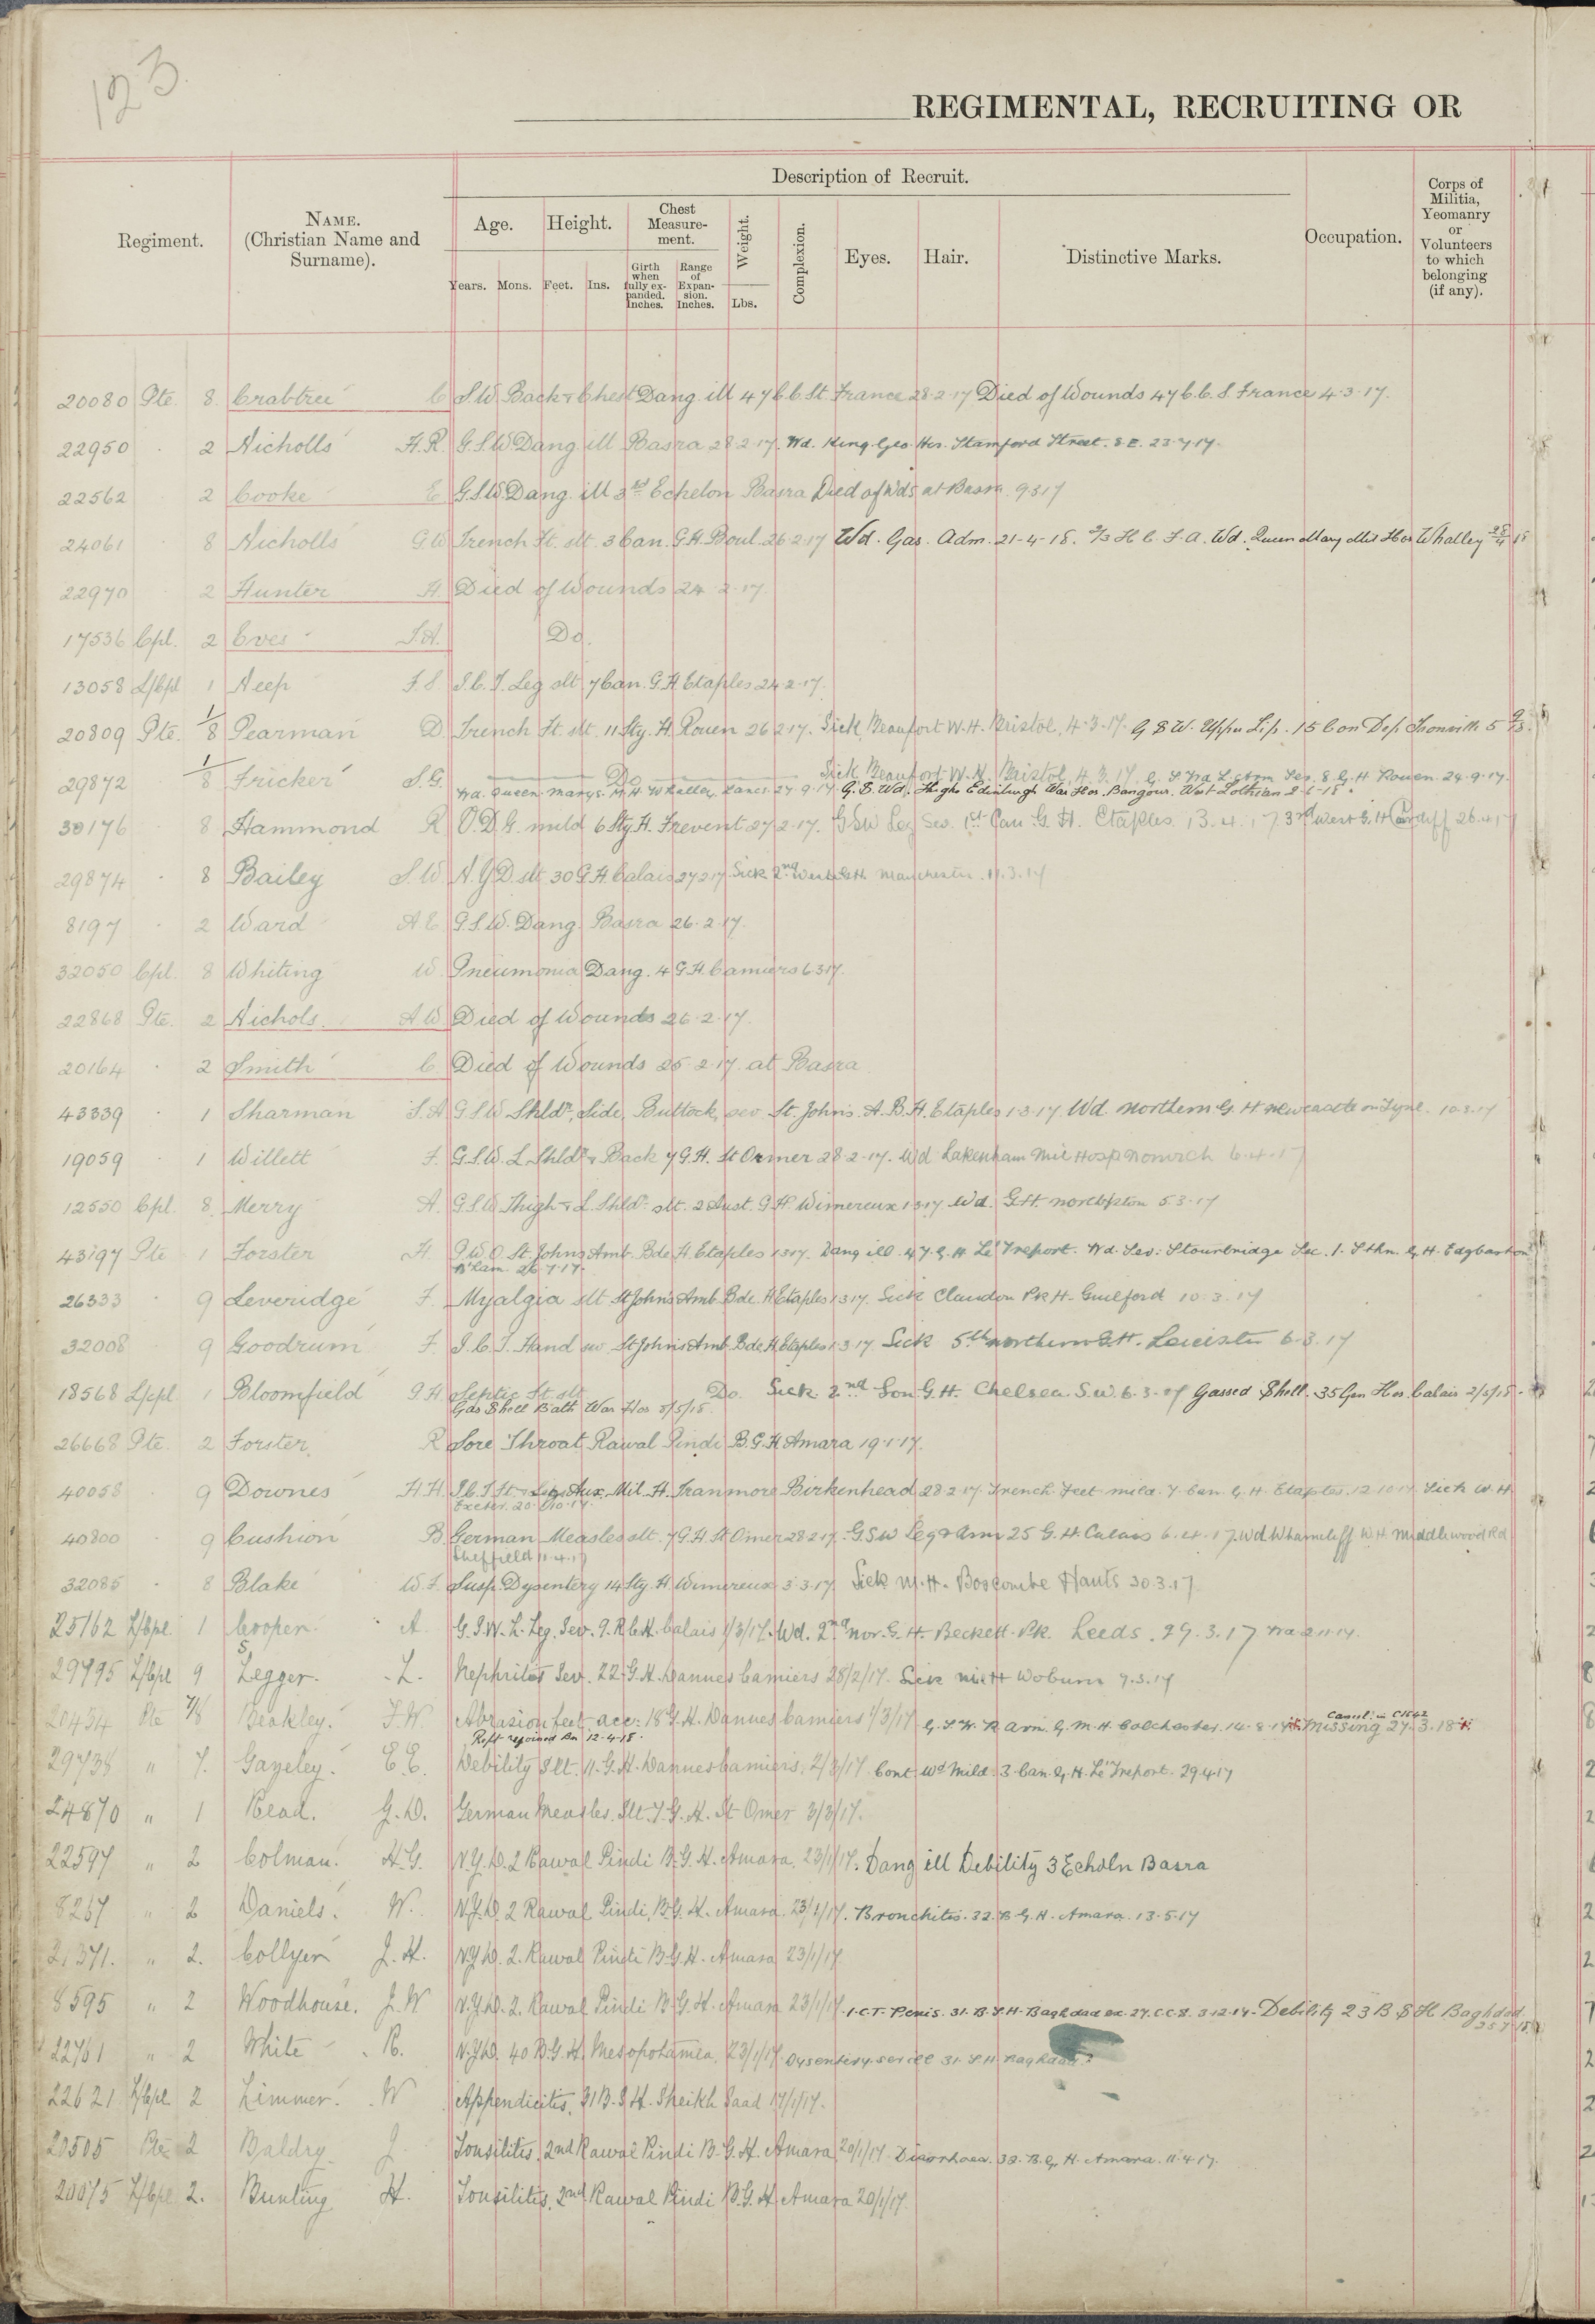 123
REGIMENTAL, RECRUITING OR
Description of Recruit.
Regiment.
NAME.
(Christian Name and
Surname).
Age.
Height.
Chest
Measure-
ment.
Weight.
Complexion.
Eyes.
Hair.
Distinctive Marks.
Occupation.
Corps of
Militia,
Yeomanry
or
Volunteers
to which
belonging
(if any).
Years.
Mons.
Feet.
Ins.
Girth
when
fully ex-
panded.
Inches.
Range
of
Expan-
sion.
Inches.
Lbs.
20080 Pte. 8 Crabtree C S.W. Back & Chest Dang. ill 47 C.C.St. France 28.2.17 Died of Wounds 47 C.C.S. France 4.3.17.
22950 . 2 Nicholls H.R. G.S.W. Dang. ill Basra 28.2.17. Wd. King. Geo. Hos. Stamford Street. S.E. 23.7.17.
22562 2 Cooke E G.S.W. Dang. ill 3rd Echelon Basra Died of Wds at Basra 9.3.17
24061 . 8 Nicholls G.W Trench Ft. slt. 3 Can. G.H. Boul. 26.2.17 Wd. Gas. Adm. 21-4-18. 2/3 H C F.A. Wd. Queen Mary Mil Hos Whalley 28/4 18
22970 2 Hunter H. Died of Wounds 24.2.17.
17536 Cpl. 2 Eves S.A. Do.
13058 L/Cpl 1 Neep F.S. I.C.T. Leg slt 7 Can. G.H. Etaples 24.2.17.
20809 Pte. 1/8 Pearman D Trench Ft. slt. 11 Sty. H. Rouen 26.2.17. Sick Beaufort W.H. Bristol. 4.3.17. G S W. Upper Lip. 15 Con Dep. 5
29872 1/8 Fricker S.G. Do Sick Beaufort W.H. Bristol. 4.3.17. Sev. 8 G.H. Rouen. 24.9.17.
Wd. Queen Marys. M.H. Whalley Lancs. 27.9.17. G.S. Wd. Thigh Edinburgh War Hos. Bangour. West Lothian 2-6-18.
30176 8 Hammond R O.D.G. mild 6 Sty. H. Frevent 27.2.17. GSW Leg Sev. 1st Can. G.H. Etaples. 13.4.17 3rd West G.H Cardiff 26.4.17
29874 . 8 Bailey S.W N.Y.D. slt 30 G.H. Calais 27.2.17 Sick 2nd West G.H. Manchester. 11.3.17
8197 . 2 Ward A.E G.S.W. Dang. Basra 26.2.17.
32050 Cpl. 8 Whiting W. Pneumonia Dang. 4 G.H. Camiers 6.3.17.
22868 Pte. 2 Nichols. A.W Died of Wounds 26.2.17.
20164 . 2 Smith C. Died of Wounds 25.2.17. at Basra.
43339 . 1 Sharman S.A G.S.W Shldr, Side, Buttock, sev St. Johns. A.B.H. Etaples 1.3.17. Wd. Northern G.H Newcastle on Tyne. 10.3.17
19059 . 1 Willett F. G.S.W. L Shldr & Back 7 G.H. St Omer 28.2.17. Wd Lakenham Mil Hosp Norwich 6.4.17
12550 Cpl. 8. Merry A. G.S.W Thigh & L. Shldr. slt. 2 Aust. G.H. Wimereux 1.3.17 Wd. G.H. Northpton 5.3.17
43197 Pte 1 Forster H. G.W.O. St. Johns Amb. Bde. H. Etaples 1.3.17. Dang ill. 47. G.H. Le Treport. Wd. Sev: Stourbridge Sec. 1. Sthn. G.H. Edgbaston
B'ham. 26.7.17.
26333 . 9 Leveridge F. Myalgia slt St Johns Amb. Bde. H Etaples 1.3.17. Sick Clandon Pk H. Guilford 10.3.17
32008 . 9 Goodrum F. I.C.T. Hand sev St Johns Amb. Bde. H. Etaples 1.3.17 Sick 5th Northern G.H. Leicester 6.3.17
18568 L/cpl 1 Bloomfield G.H Septic Ft. slt Do. Sick 2nd Lon G.H. Chelsea S.W. 6.3.17 Gassed Shell. 35 Gen Hos Calais 2/5/18.
Gas Shell Bath War Hos 8/5/18.
26668 Pte. 2 Forster R Sore Throat Rawal Pindi B.G.H Amara 19.1.17.
40058 . 9 Downes H.H. I.C.T. Ft & Leg Aux. Mil. H. Tranmore Birkenhead 28.2.17 Trench. Feet mild. 7 Can. G.H. Etaples. 12.10.17. Sick W.H
Exeter. 20.10.17.
40800 9 Cushion B German Measles slt. 7 G.H. St Omer 28.2.17. GSW Leg & Arm 25 G.H. Calais 6.4.17. Wd Wharncliff W.H. Middlewood Rd
Sheffield 11.4.17
32085 . 8 Blake W.F. Susp. Dysentery 14 Sty. H. Wimereux 3.3.17. Sick M.H. Boscombe Hants 30.3.17.
25162 L/Cpl. 1 Cooper. A G.S.W. L. Leg. Sev. 9. R.C.H. Calais 1/3/17. Wd. 2nd Nor. G.H. Beckett. Pk. Leeds. 29.3.17
29795 L/Cpl 9 Segger. L. Nephritis Sev. 22. G.H. Dannes Camiers 28/2/17. Sick Mil H Woburn 9.3.17
20434 Pte 7/8 Beakley. F.W. Abrasion feet acc: 18 G.H. Dannes Camiers 1/3/17 G.S.W. R Arm. G.M.H. Colchester. 14.8.17. Missing 27.3.18. Cancl: in C1842
Reft rejoined Bn 12-4-18.
29738 " 7. Gazeley. E.E. Debility Slt. 11. G.H. Dannes Camiers. 2/3/17. Cont. Wd Mild. 3. Can. G.H. Le Treport. 29.4.17
24870 " 1 Read. G.D. German Measles. Slt. 7. G.H. St Omer 3/3/17.
22597 " 2 Colman. H.G. N.Y.D. 2 Rawal Pindi B.G.H. Amara. 23/1/17. Dang ill Debility 3 Echeln Basra
8267 " 2 Daniels. W. N.Y.D. 2 Rawal Pindi, B.G.H. Amara. 23/1/17. Bronchitis. 32. B.G.H. Amara. 13.5.17
21371. " 2. Collyer J.H. N.Y.D. 2. Rawal Pindi B.G.H. Amara 23/1/17.
8595 " 2 Woodhouse. J.W N.Y.D. 2. Rawal Pindi B.G.H. Amara 23/1/17. I.C.T. Penis. 31. B.S.H. Baghdad ex. 27. C.C.S. 3.12.17. Debility 23 B S H Baghdad
25 7 18
22761 " 2 White R. N.Y.D. 40 B.G.H. Mesopotamia. 23/1/17. Dysentery. ser ill 31. S.H. Baghdad.
22621 L/Cpl 2 Limmer. W Appendicitis, 31 B.S.H. Sheikh Saad 17/1/17.
20505 Pte 2 Baldry. J Tonsilitis, 2nd Rawal Pindi B.G.H. Amara 20/1/17. Diaorhoea. 32. B.G.H. Amara. 11.4.17.
20075 L/Cpl 2. Bunting H. Tonsilitis, 2nd Rawal Pindi B.G.H Amara 20/1/17.